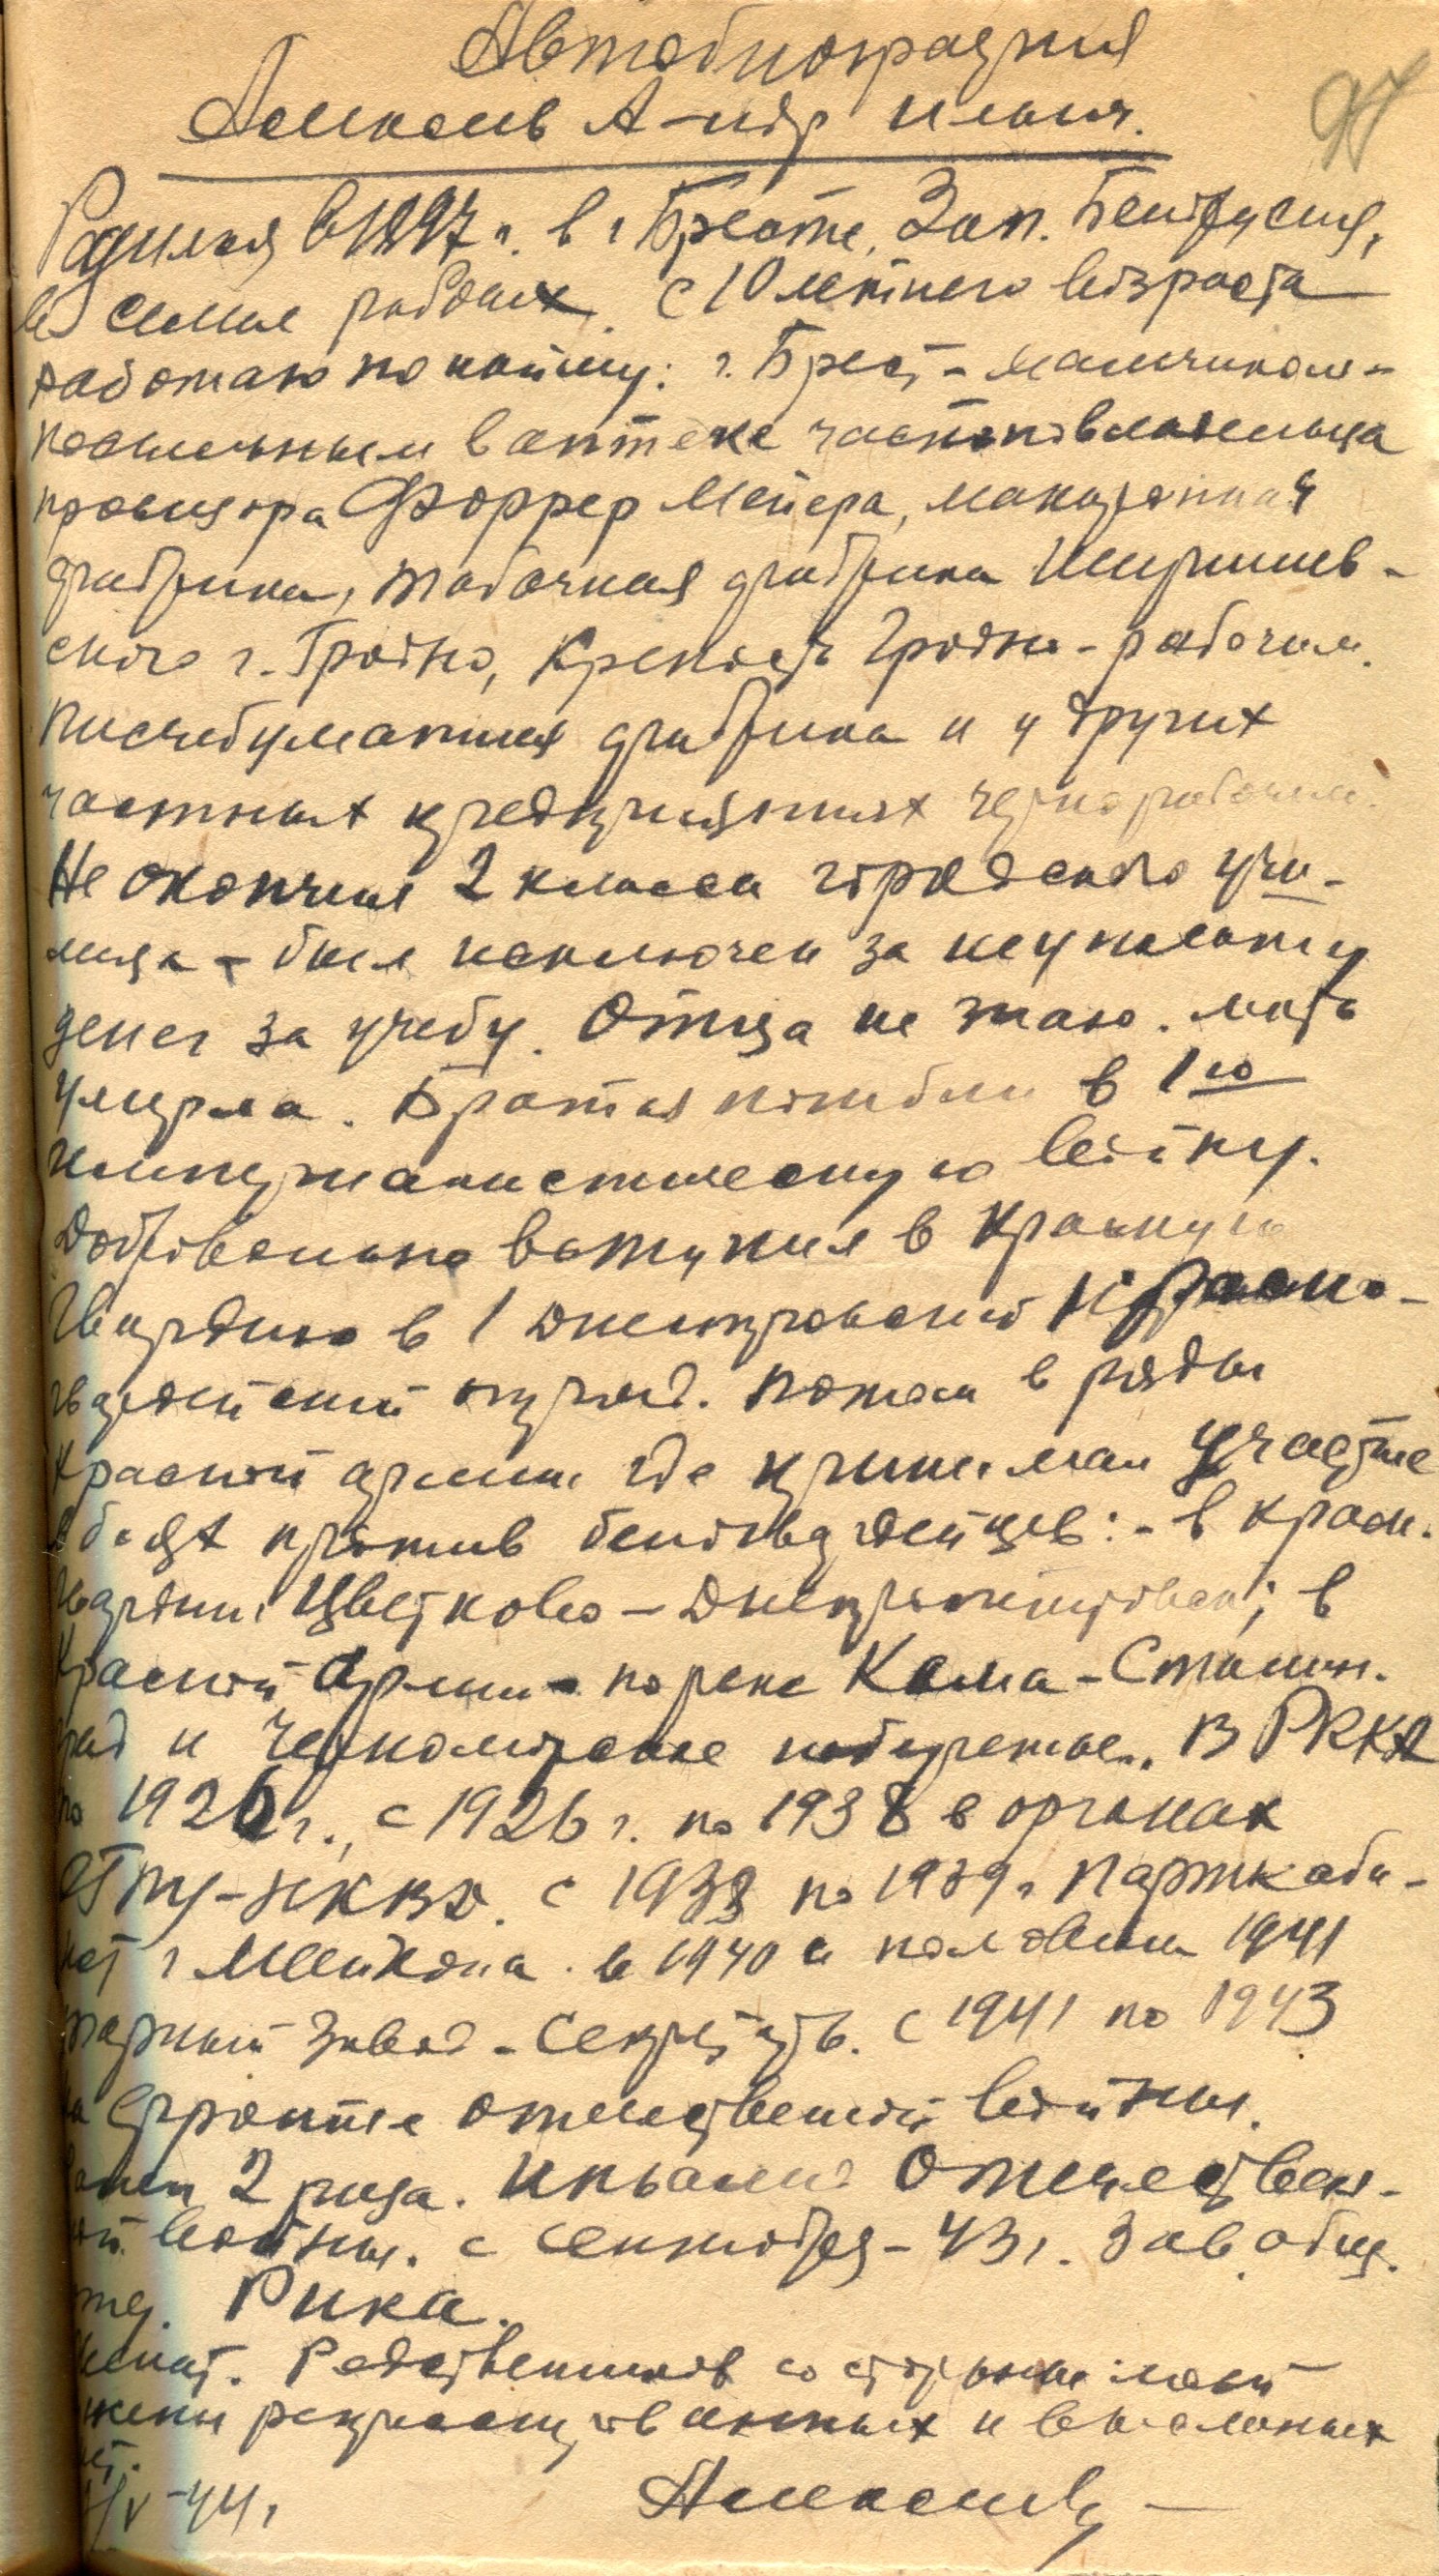 Автобиография
97
Алексеев А-ндр Ильич.
Родился в 1897 г. в г Бресте, Зап. Белорусия,
в семье рабочих. С 10 летнего возраста
работаю по найму: г. Брест - мальчиком-
посыльным в аптеке частновладельца
провизора Форрер Мейера, макаронная
фабрика, табочная фабрика Шершев-
ского г. Гродно, Крепость Гродно - рабочим.
Писчебумажная фабрика и у других
частных предприятиях чернорабочим.
Не окончил 2 класса городского учи-
лища - был исключен за неуплату
денег за учебу. Отца не знаю. мать
умерла. Братья погибли в 1ю
империалистическую войну.
Добровольно вступил в Красную
Гвардию в 1 Днепровский Красно-
гвардейский отряд. потом в ряды
Красной армии где принимал участие
в боях против белогвардейцев: - в красн.
гвардии Цветково - Днепропетровск; в
Красной Армии - по реке Кама - Сталин-
град и Черноморское побережье. В РККА
по 1926 г., с 1926 г. по 1938 в органах
ОГПУ-НКВД. с 1938 по 1939 г. Парткаби-
нет г Майкопа. в 1940 и половина 1941
тарный завод - Секретарь. С 1941 по 1943
на фронте отечественной войны.
Ранен 2 раза. Инвалид Отечествен-
ной войны. с сентября - 43 г. Зав. общ.
отд. Рика.
Женат. Родственников со стороны моей
жены репрессированных и высланных
нет.
/IV-44 г. Алексеев